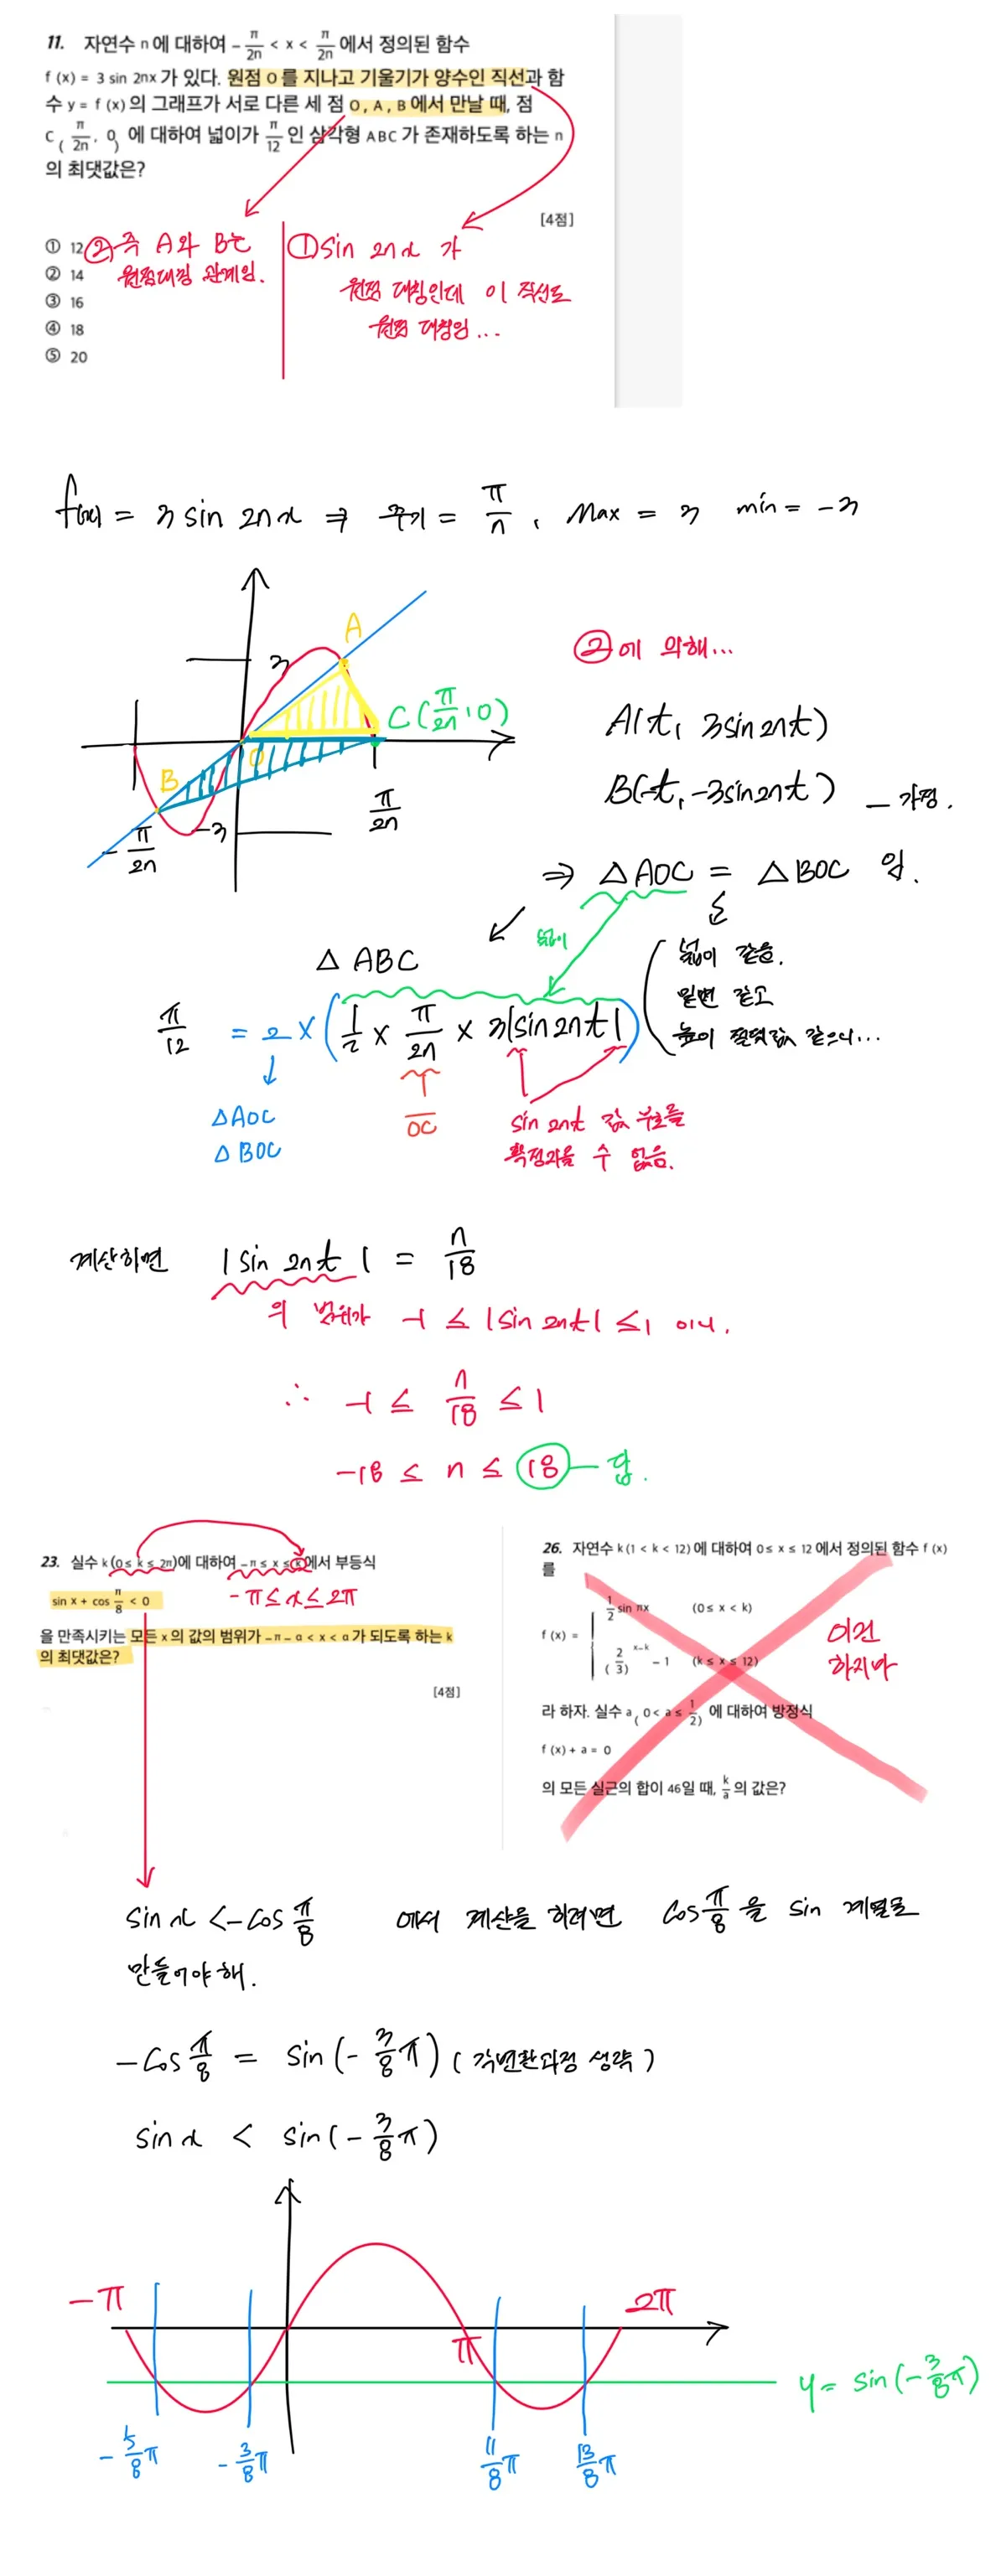 11. 자연수 n에 대하여 - π/2n < x < π/2n 에서 정의된 함수
f (x) = 3 sin 2nx 가 있다. 원점 O를 지나고 기울기가 양수인 직선과 함
수 y = f (x)의 그래프가 서로 다른 세 점 O, A, B에서 만날 때, 점
C ( π/2n, 0) 에 대하여 넓이가 π/12 인 삼각형 ABC가 존재하도록 하는 n
의 최댓값은?
[4점]
① 12
② 14
③ 16
④ 18
⑤ 20
② 즉 A와 B는
원점대칭 관계임.
① sin 2nx 가
원점 대칭인데 이 직선도
원점 대칭임...
f(x) = 3 sin 2nx ⇒ 주기 = π/n, Max = 3 min = -3
A
3
C(π/2n, 0)
O
B
-3
-π/2n
π/2n
②에 의해...
A(t, 3sin2nt)
B(-t, -3sin2nt) — 가정.
⇒ △AOC = △BOC 임.
넓이
넓이 같음.
밑변 같고
높이 절댓값 같으니...
△ABC
π/12 = 2 × (1/2 × π/2n × 3|sin2nt|)
△AOC
△BOC
OC
sin 2nt 값 부호를
확정지을 수 없음.
계산하면 |sin 2nt| = n/18
의 범위가 -1 ≤ |sin 2nt| ≤ 1 이니.
∴ -1 ≤ n/18 ≤ 1
-18 ≤ n ≤ 18 — 답.
23. 실수 k (0 ≤ k ≤ 2π)에 대하여 -π ≤ x ≤ k에서 부등식
-π ≤ x ≤ 2π
sin x + cos π/8 < 0
을 만족시키는 모든 x의 값의 범위가 -π - α < x < α가 되도록 하는 k
의 최댓값은?
[4점]
26. 자연수 k (1 < k < 12)에 대하여 0 ≤ x ≤ 12에서 정의된 함수 f (x)
를
f (x) = 1/2 sin πx (0 ≤ x < k)
(2/3)^x-k - 1 (k ≤ x ≤ 12)
이건
하지마
라 하자. 실수 a ( 0 < a ≤ 1/2) 에 대하여 방정식
f (x) + a = 0
의 모든 실근의 합이 46일 때, k/a 의 값은?
sin x < -cos π/8 에서 계산을 하려면 cos π/8 을 sin 계열로
만들어야 해.
-cos π/8 = sin(-3/8π) (각변환과정 생략)
sin x < sin(-3/8π)
-π
π
2π
y = sin(-3/8π)
-5/8π
-3/8π
11/8π
13/8π